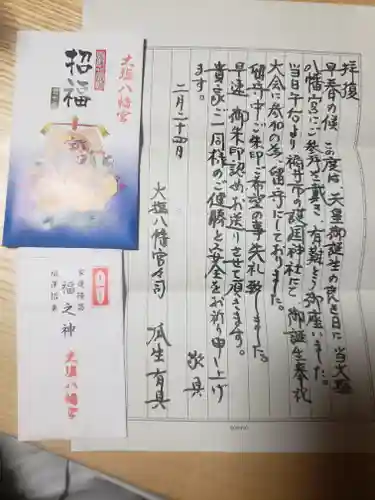 拝復
早春の候 この度は、天皇御誕生の良き日に 当大塩
八幡宮にご参拝を戴き、有難とう御座いました。
当日午前より福井市の護国神社にて御誕生奉祝
大会に参加の為、留守にしておりました。
留守中、ご朱印ご希望の事、失礼致しました。
早速、御朱印認めお送りさせて頂きます。
貴家ご一同様のご健勝と安全をお祈り申し上げ
ます。
敬具
二月二十四日
大塩八幡宮々司 瓜生有具
大塩八幡宮
招福
福之神
大塩八幡宮